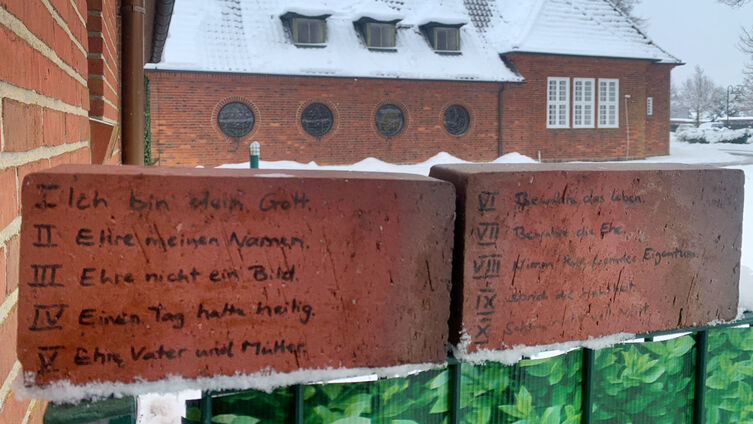 I Ich bin dein Gott.
II Ehre meinen Namen.
III Ehre nicht ein Bild.
IV Einen Tag halte heilig.
V Ehre Vater und Mutter.
VI Bewahre das Leben.
VII Bewahre die Ehe.
VIII Nimm kein fremdes Eigentum.
IX Sprich die Wahrheit.
X nicht